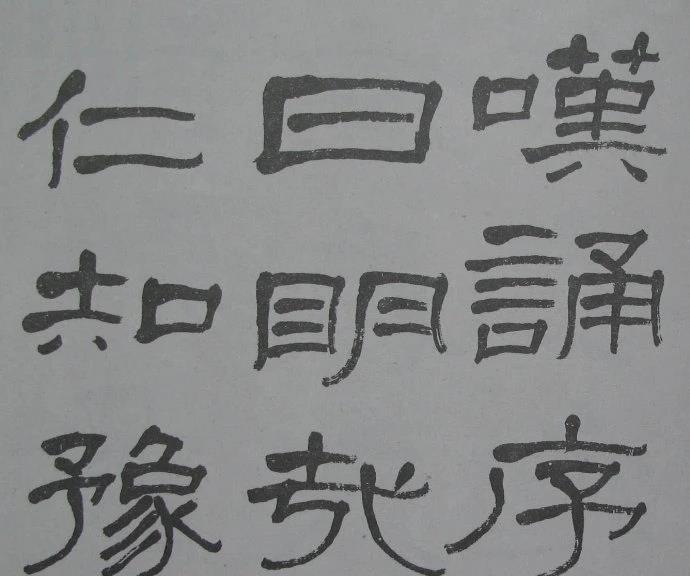 嘆誦序
曰明哉
仁知豫